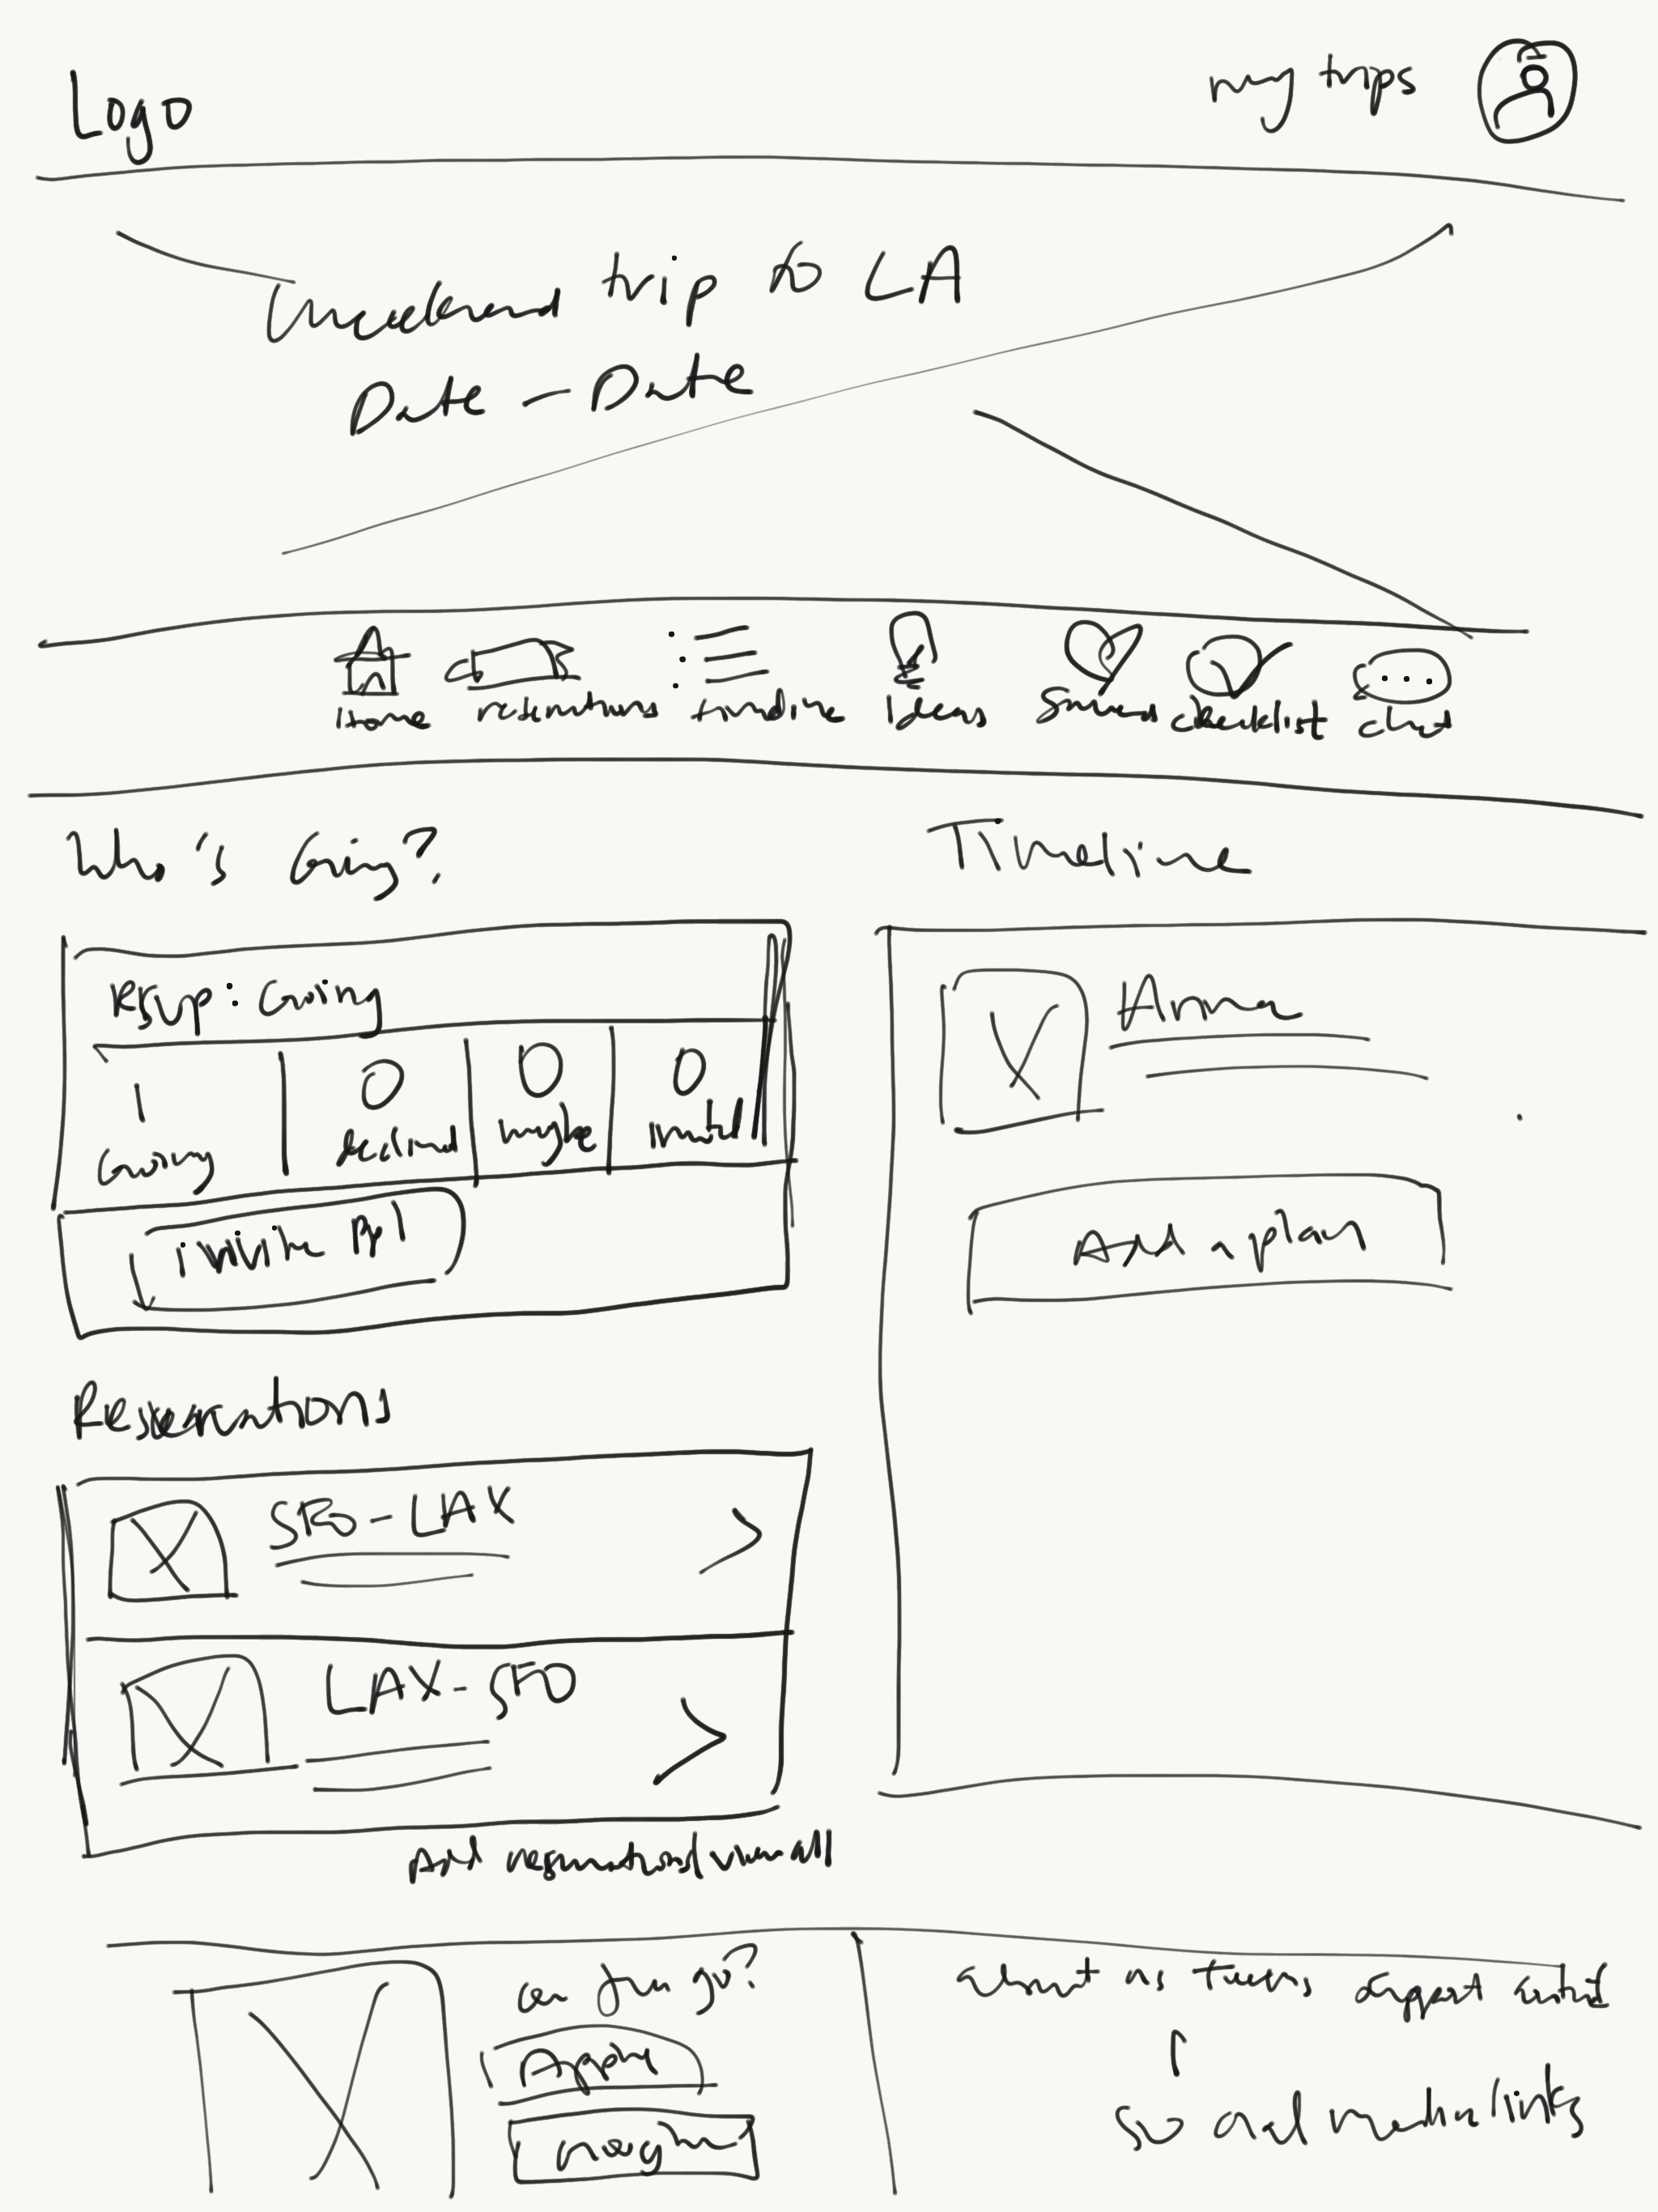 Logo
my trips
Weekend trip to LA
Date - Date
Home
reservations
timeline
Ideas
Saved
checklist
chat
Who's Going?
Rsvp: Going
1
Going
0
declined
0
maybe
0
invited
invite ppl
Reservations
SFO-LAX
LAX-SFO
Add reservations/view all
Timeline
Add a plan
on you go?
about us terms support
social media links